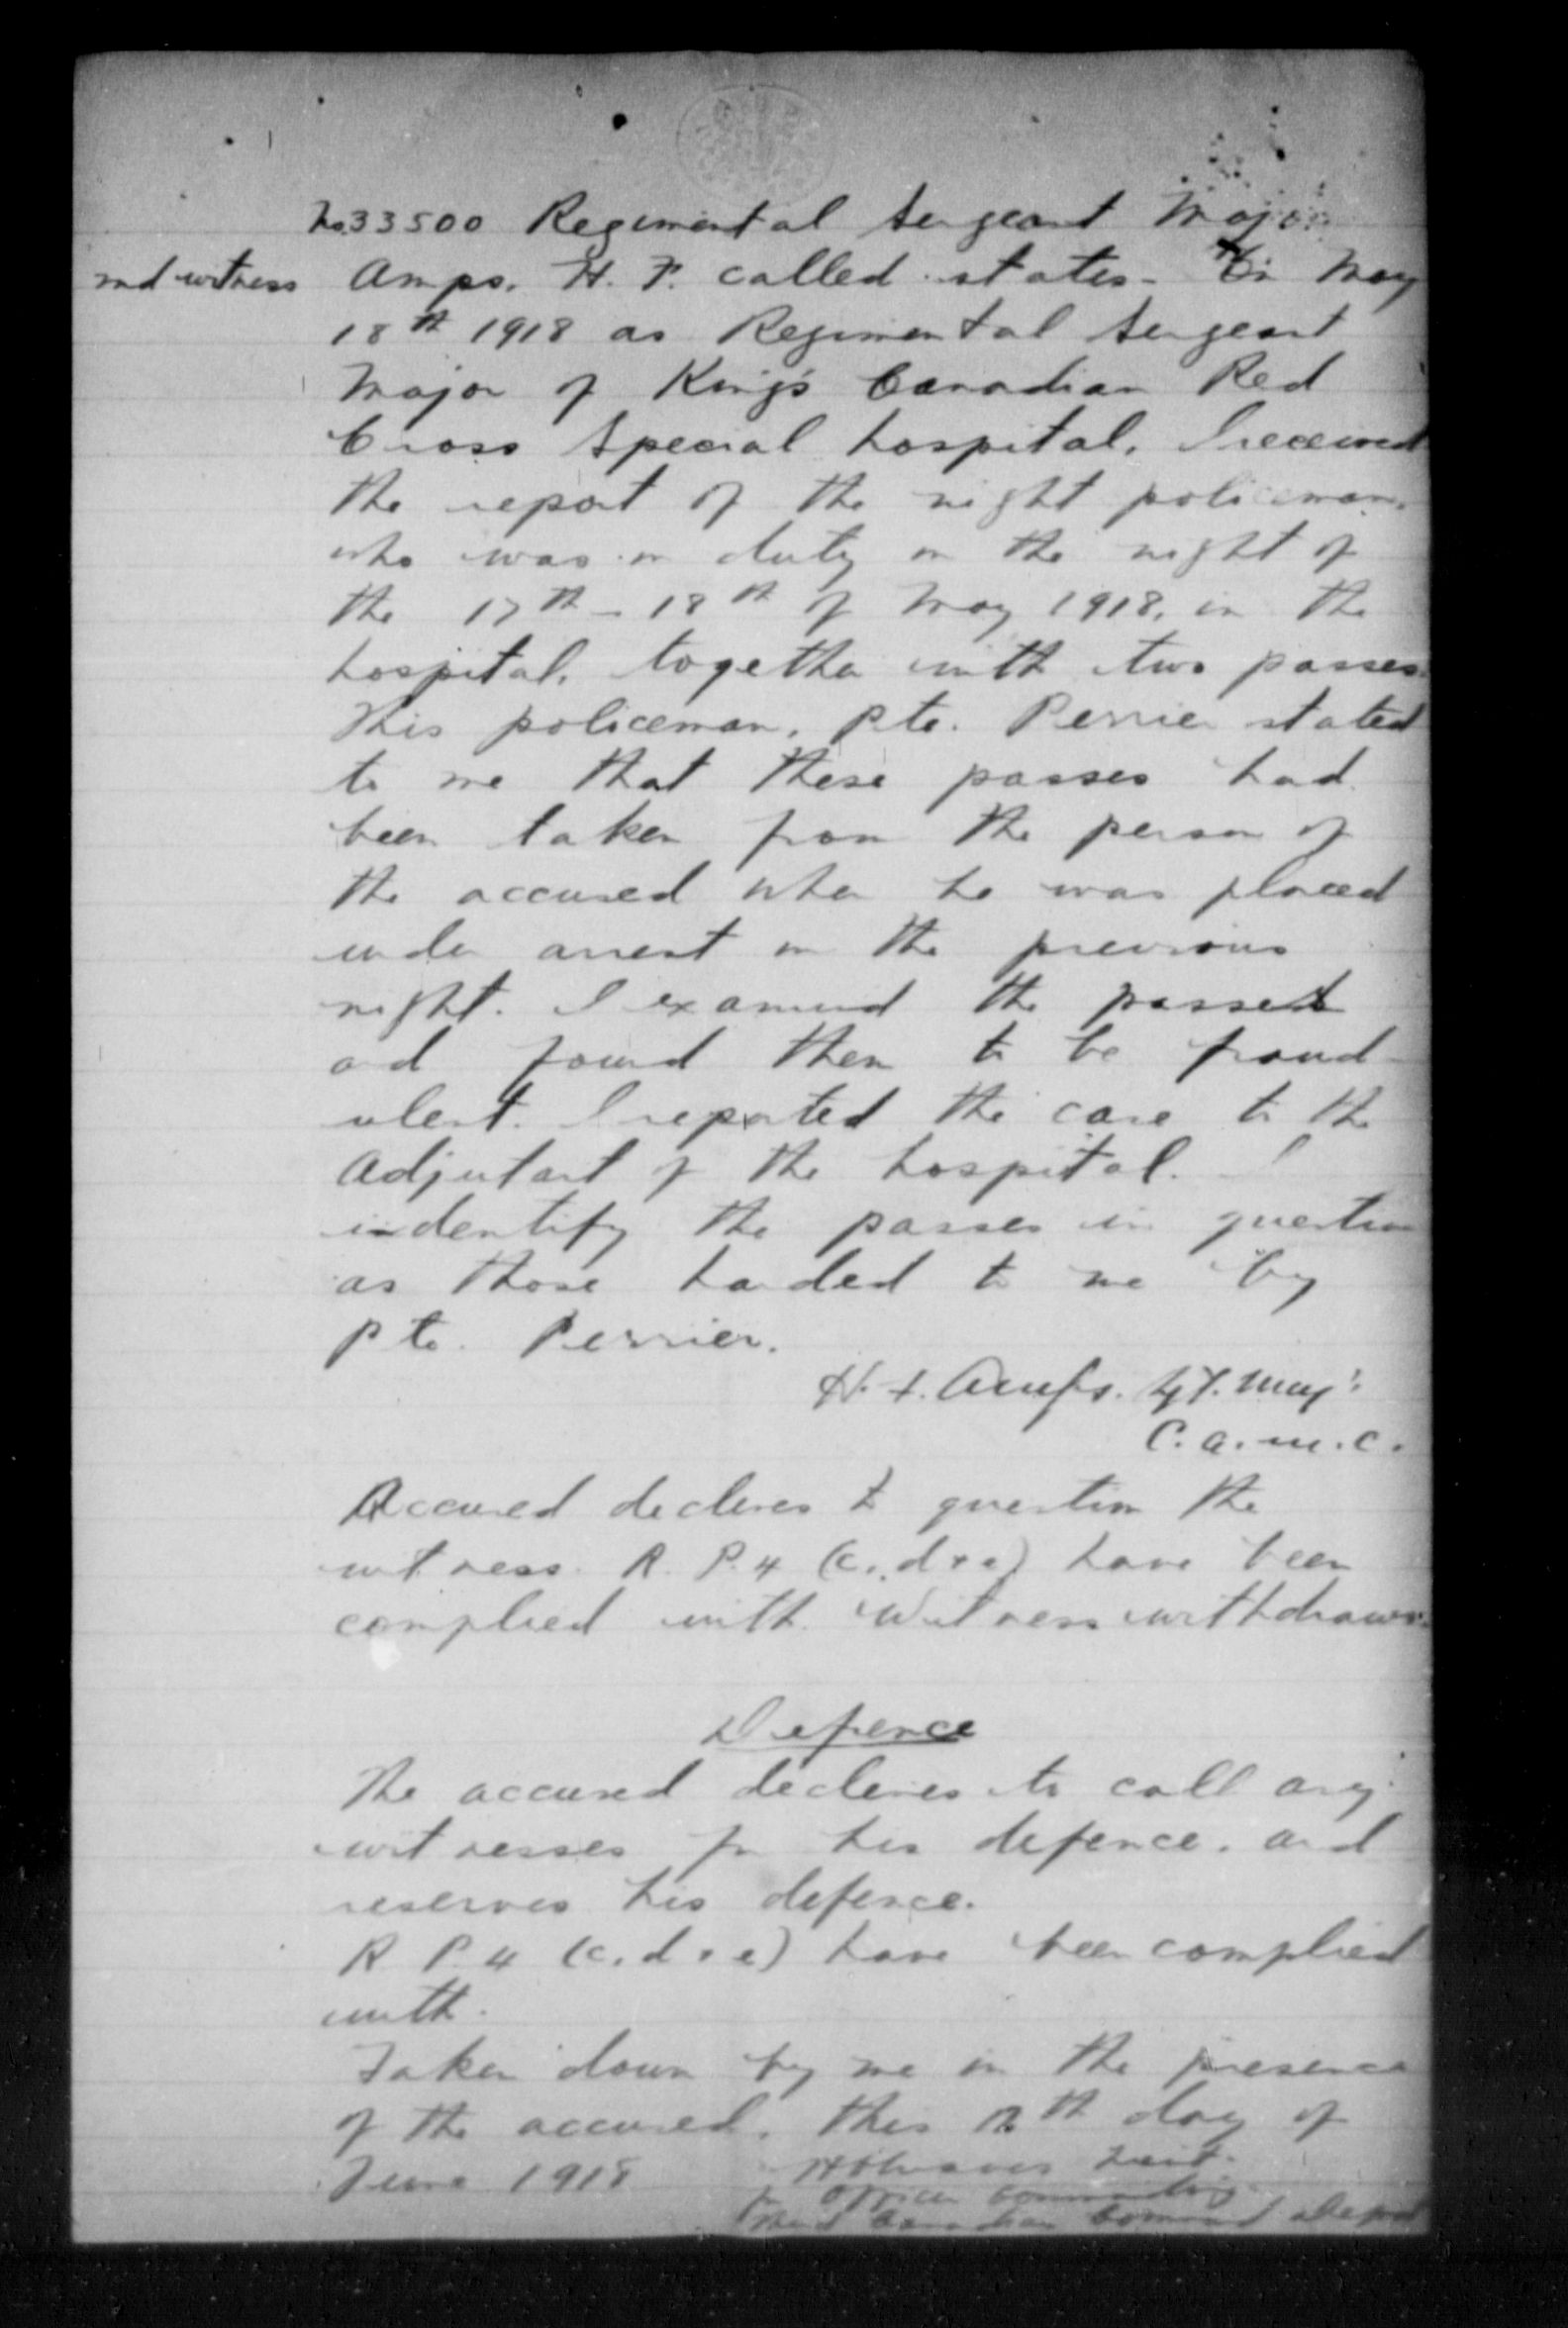 No 33500 Regimental Sergeant Major
2nd witness Amps. H. F. called states - On May
18th 1918 as Regimental Sergeant
Major of King's Canadian Red
Cross Special hospital, I received
the report of the night policeman,
who was on duty on the night of
the 17th - 18th of May 1918, in the
hospital, together with two passes.
This policeman, Pte. Perrier stated
to me that these passes had
been taken from the person of
the accused when he was placed
under arrest on the previous
night. I examined the passes
and found them to be fraud-
ulent. I reported the case to the
Adjutant of the hospital. I
indentify the passes in question
as those handed to me by
Pte. Perrier.
H. F. Amps. Sgt. Maj:
C.A.M.C.
Accused declines to question the
witness. R. P. 4 (c, d & e) have been
complied with. Witness withdraws.
Defence
The accused declines to call any
witnesses for his defence, and
reserves his defence.
R P. 4 (c, d & e) have been complied
with.
Taken down by me in the presence
of the accused, this 12th day of
June 1918 Lieut.
for Officer Commanding
Canadian Command Depot